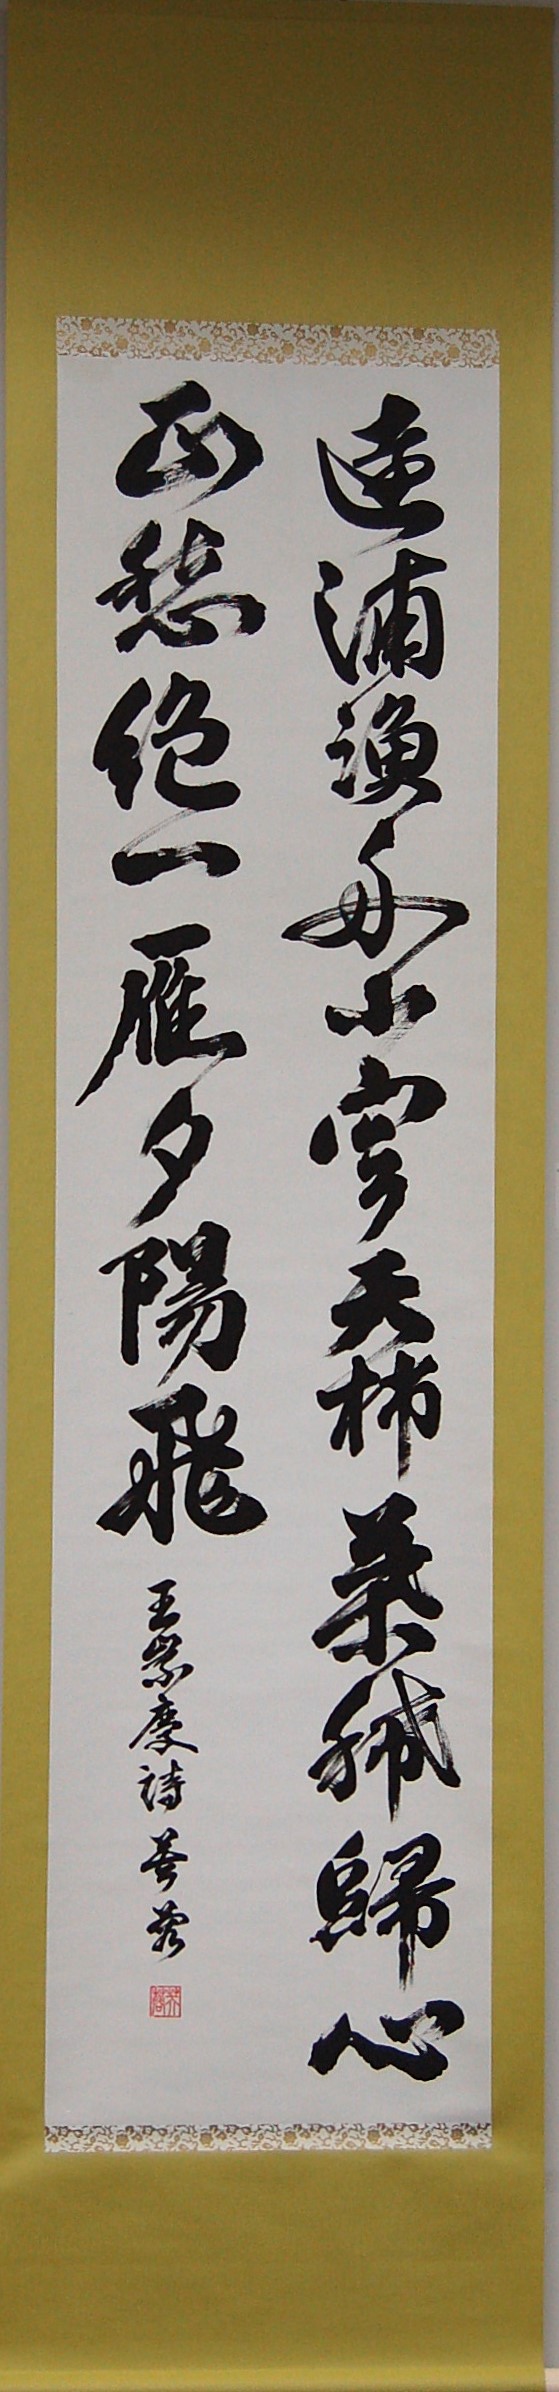 遠浦漁舟小寒天柿葉稀歸心
正愁絶一雁夕陽飛 王崇慶詩